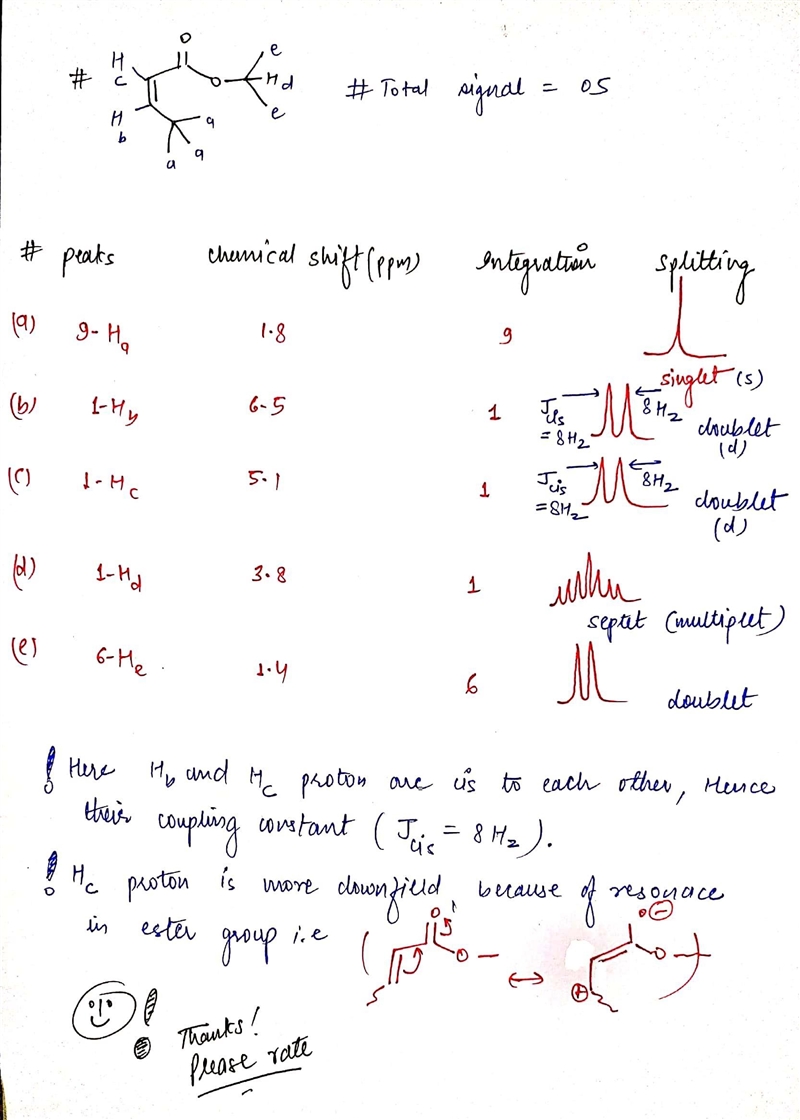 # H c H b O O e H d e a a a # Total signal = 05
# peaks chemical shift (ppm) Integration splitting
(a) 9-Ha 1.8 9 singlet (s)
(b) 1-Hb 6.5 1 Jcis = 8Hz 8Hz doublet (d)
(c) 1-Hc 5.1 1 Jcis = 8Hz 8Hz doublet (d)
(d) 1-Hd 3.8 1 septet (multiplet)
(e) 6-He 1.4 6 doublet
! Here Hb and Hc proton are cis to each other, Hence
their coupling constant (Jcis = 8Hz).
! Hc proton is more downfield, because of resonace
in ester group i.e ( O O ↔ O⊖ O ⊕ )
Thanks!
Please rate